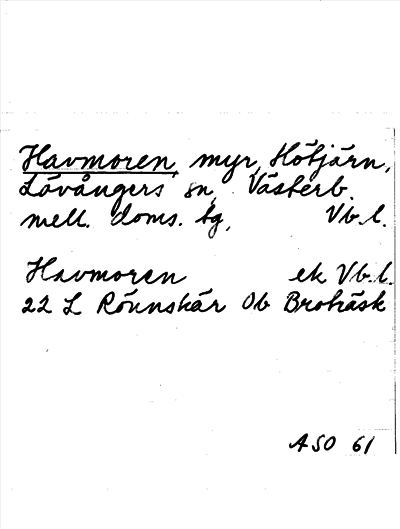 Havmoren, myr, Hötjärn,
Lövångers sn, Västerb.
mell. doms. bg, Vb.l.
Havmoren ek Vb.l.
22 L Rönnskär Ob Broträsk
ASO 61